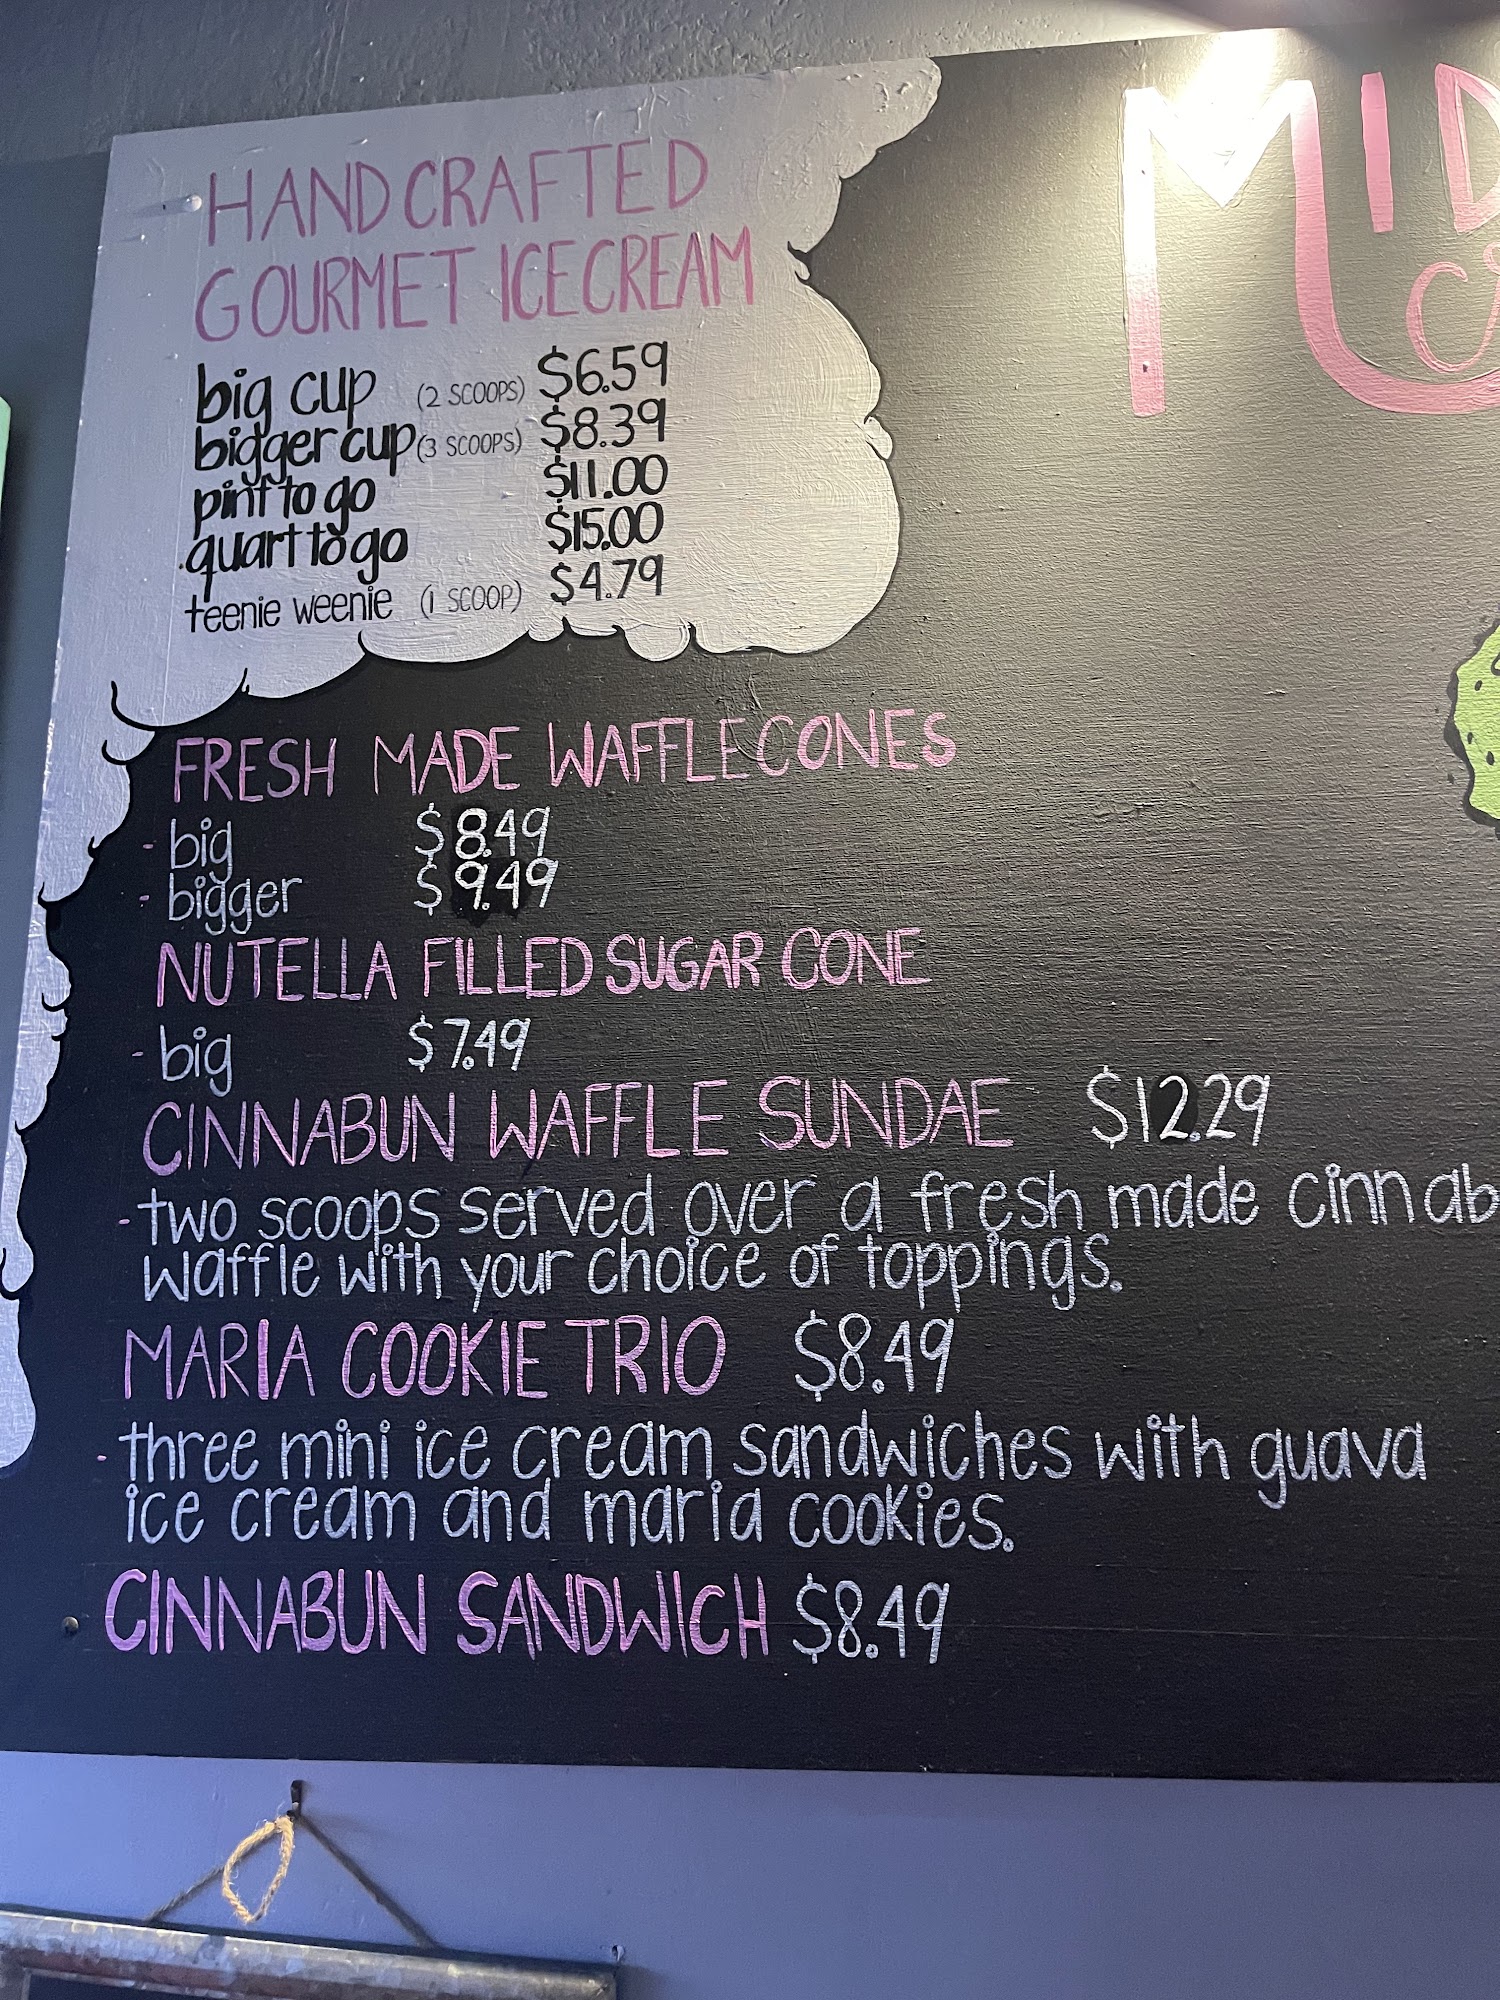 HANDCRAFTED
GOURMET ICE CREAM
big cup (2 SCOOPS) $6.59
bigger cup (3 SCOOPS) $8.39
pint to go $11.00
quart to go $15.00
teenie weenie (1 SCOOP) $4.79
MID
FRESH MADE WAFFLE CONES
- big $8.49
- bigger $9.49
NUTELLA FILLED SUGAR CONE
- big $7.49
CINNABUN WAFFLE SUNDAE $12.29
- two scoops served over a fresh made cinnab
waffle with your choice of toppings.
MARIA COOKIE TRIO $8.49
- three mini ice cream sandwiches with guava
ice cream and maria cookies.
CINNABUN SANDWICH $8.49